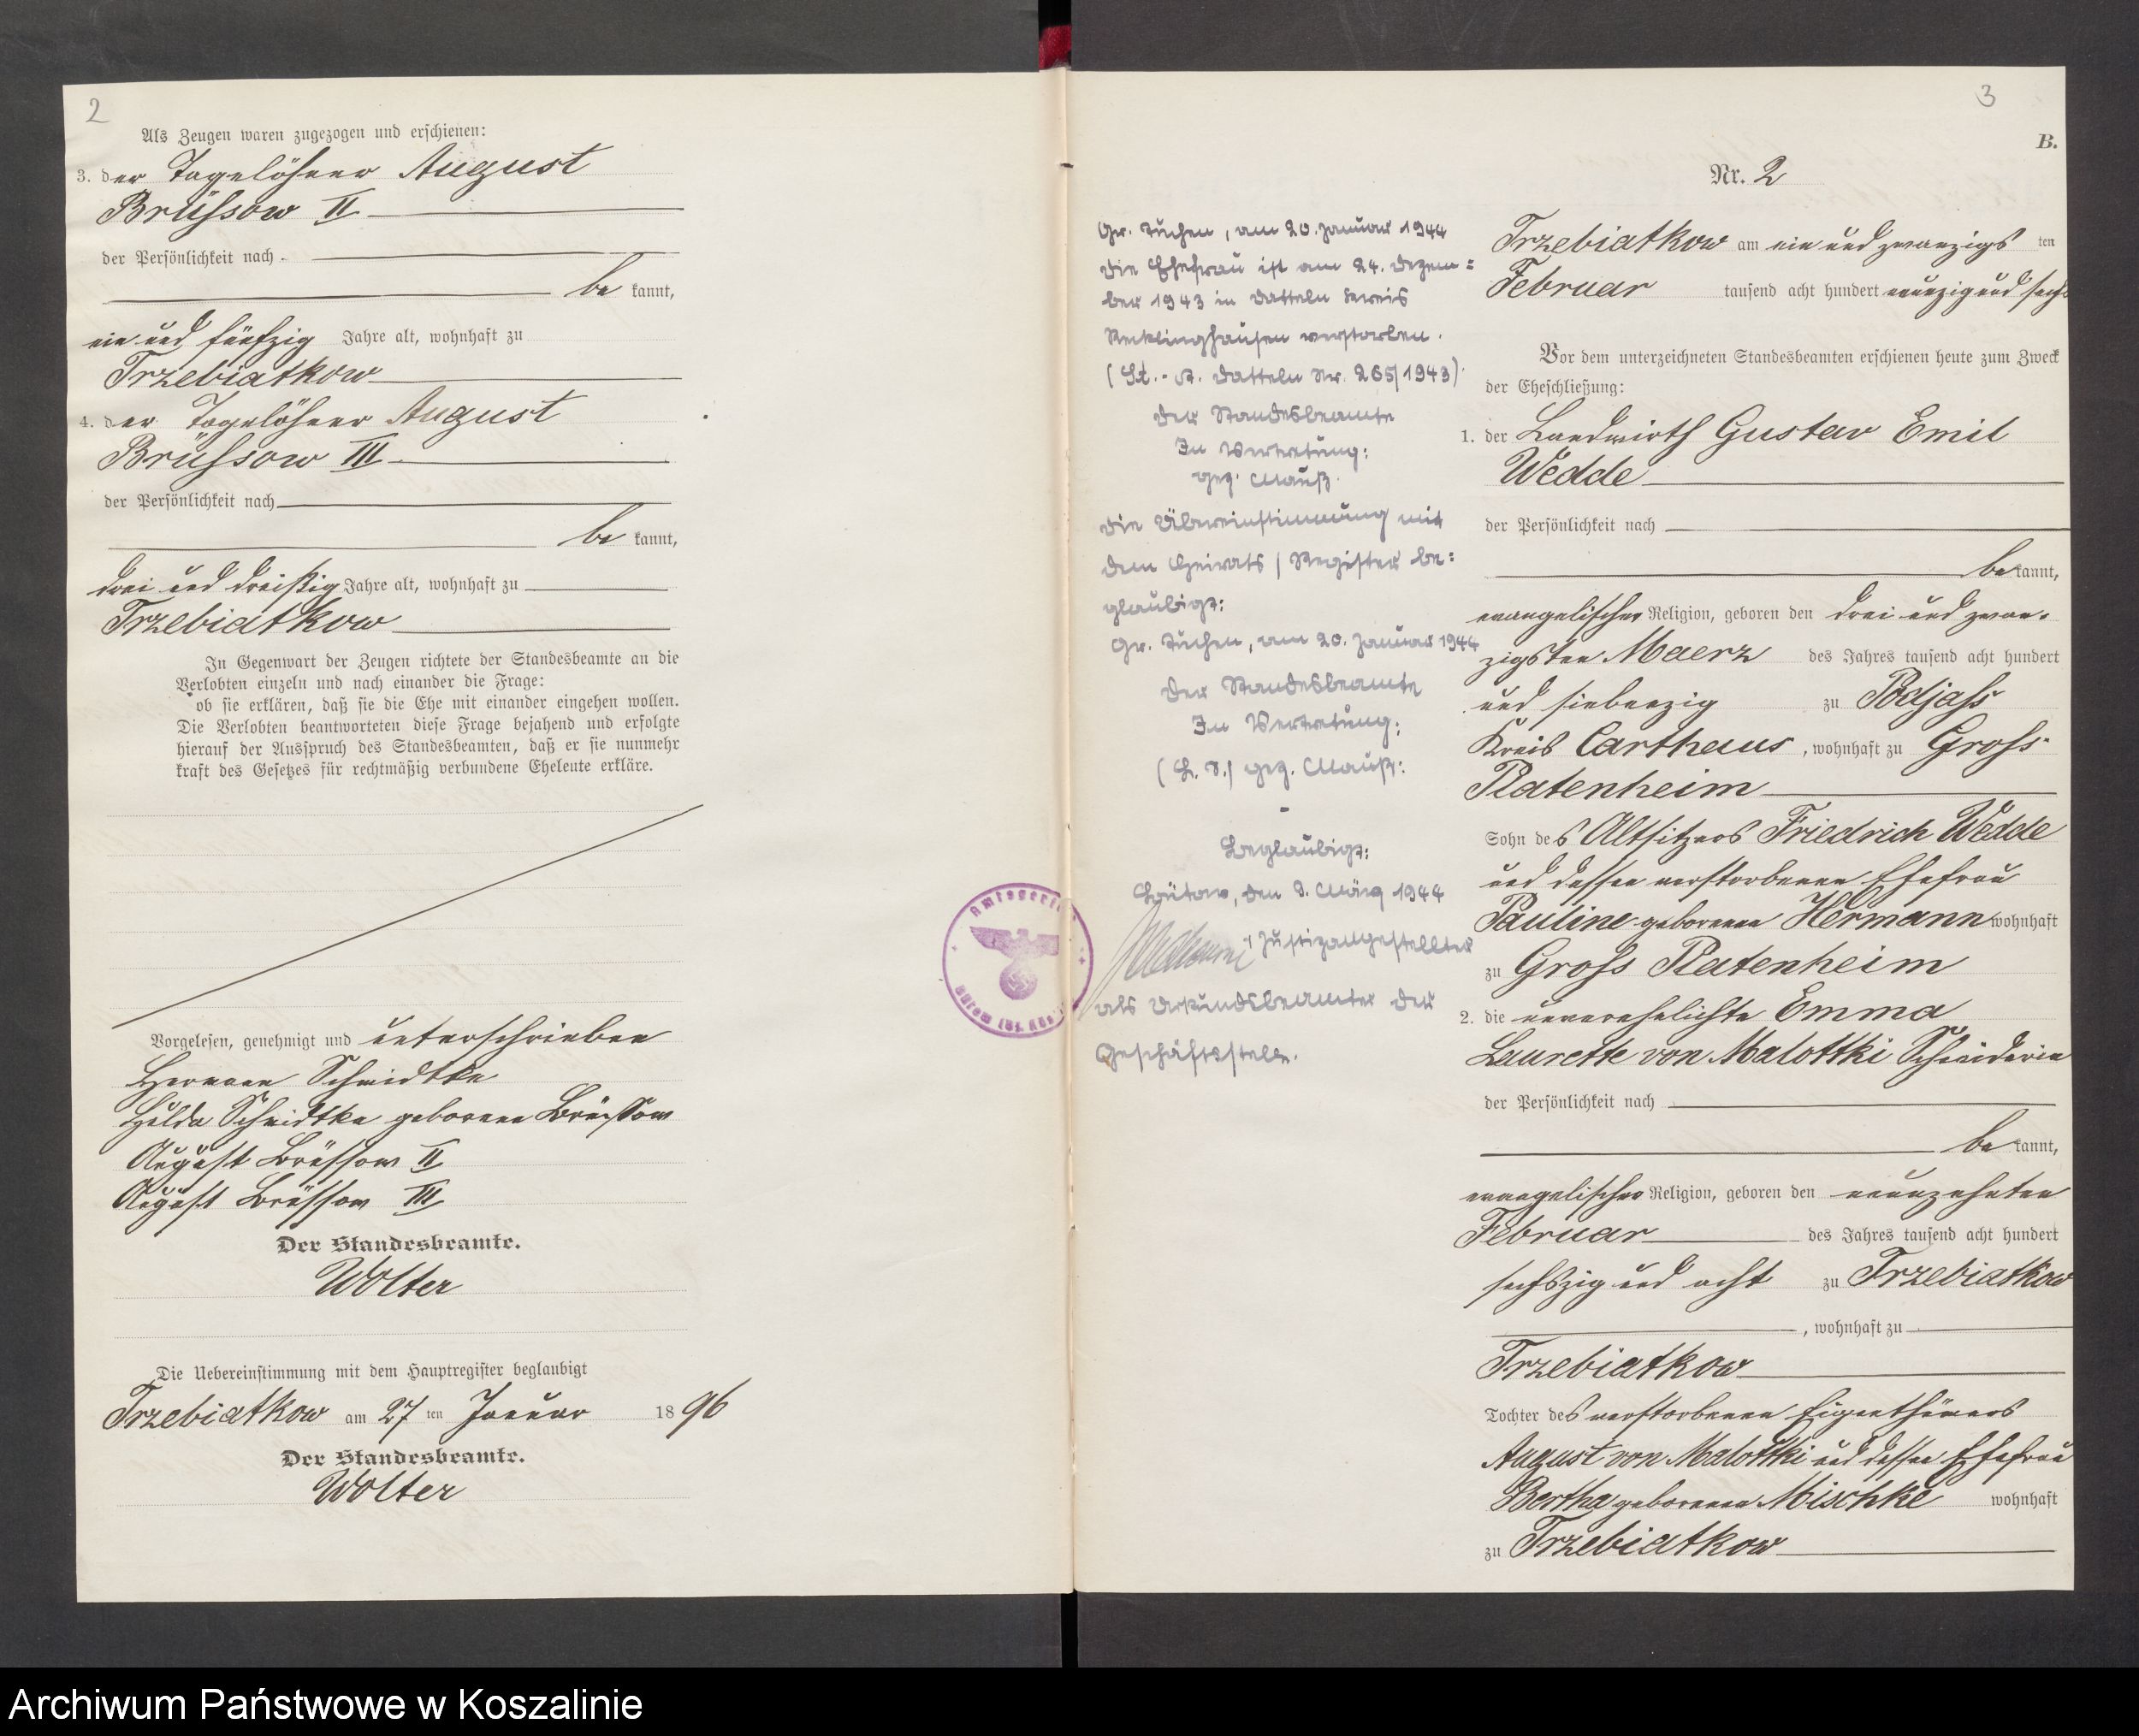 2
Als Zeugen waren zugezogen und erschienen:
3. der Tagelöhner August
Brüssow II
der Persönlichkeit nach
be kannt,
ein und fünfzig Jahre alt, wohnhaft zu
Trzebiatkow
4. der Tagelöhner August
Brüssow III
der Persönlichkeit nach
be kannt,
drei und dreißig Jahre alt, wohnhaft zu
Trzebiatkow
In Gegenwart der Zeugen richtete der Standesbeamte an die
Verlobten einzeln und nach einander die Frage:
ob sie erklären, daß sie die Ehe mit einander eingehen wollen.
Die Verlobten beantworteten diese Frage bejahend und erfolgte
hierauf der Ausspruch des Standesbeamten, daß er sie nunmehr
kraft des Gesetzes für rechtmäßig verbundene Eheleute erkläre.
Vorgelesen, genehmigt und unterschrieben
Hermann Schmidtke
Hulda Schmidtke geborene Brüssow
August Brüssow II
August Brüssow III
Der Standesbeamte.
Wolter
Die Uebereinstimmung mit dem Hauptregister beglaubigt
Trzebiatkow am 27 ten Januar 18 96
Der Standesbeamte.
Wolter
3
B.
Nr. 2
Gr. Tuchen, am 20. Januar 1944
Die Ehefrau ist am 24. Dezem=
ber 1943 in Datteln Kreis
Recklinghausen verstorben.
(St.-A. Datteln Nr. 265/1943).
Der Standesbeamte
In Vertretung:
gez. Mauß.
Die Übereinstimmung mit
dem Heirats/Register be=
glaubigt:
Gr. Tuchen, am 20. Januar 1944
Der Standesbeamte
In Vertretung:
(L. S.) gez. Mauß:
Beglaubigt:
Bütow, den 3. März 1944
Justizangestellter
als Urkundsbeamter der
Geschäftsstelle.
Trzebiatkow am ein und zwanzigs ten
Februar tausend acht hundert neunzig und sechs
Vor dem unterzeichneten Standesbeamten erschienen heute zum Zweck
der Eheschließung:
1. der Landwirth Gustav Emil
Wedde
der Persönlichkeit nach
be kannt,
evangelischer Religion, geboren den drei und zwan-
zigsten Maerz des Jahres tausend acht hundert
und siebenzig zu Podjass
Kreis Carthaus, wohnhaft zu Gross
Platenheim
Sohn des Altsitzers Friedrich Wedde
und dessen verstorbenen Ehefrau
Pauline geborenen Hermann wohnhaft
zu Gross Platenheim
2. die unverehelichte Emma
Laurette von Malottki Schneiderin
der Persönlichkeit nach
be kannt,
evangelischer Religion, geboren den neunzehnten
Februar des Jahres tausend acht hundert
sechszig und acht zu Trzebiatkow
, wohnhaft zu
Trzebiatkow
Tochter des verstorbenen Eigenthümers
August von Malottki und dessen Ehefrau
Bertha geborenen Mischke wohnhaft
zu Trzebiatkow
Archiwum Państwowe w Koszalinie